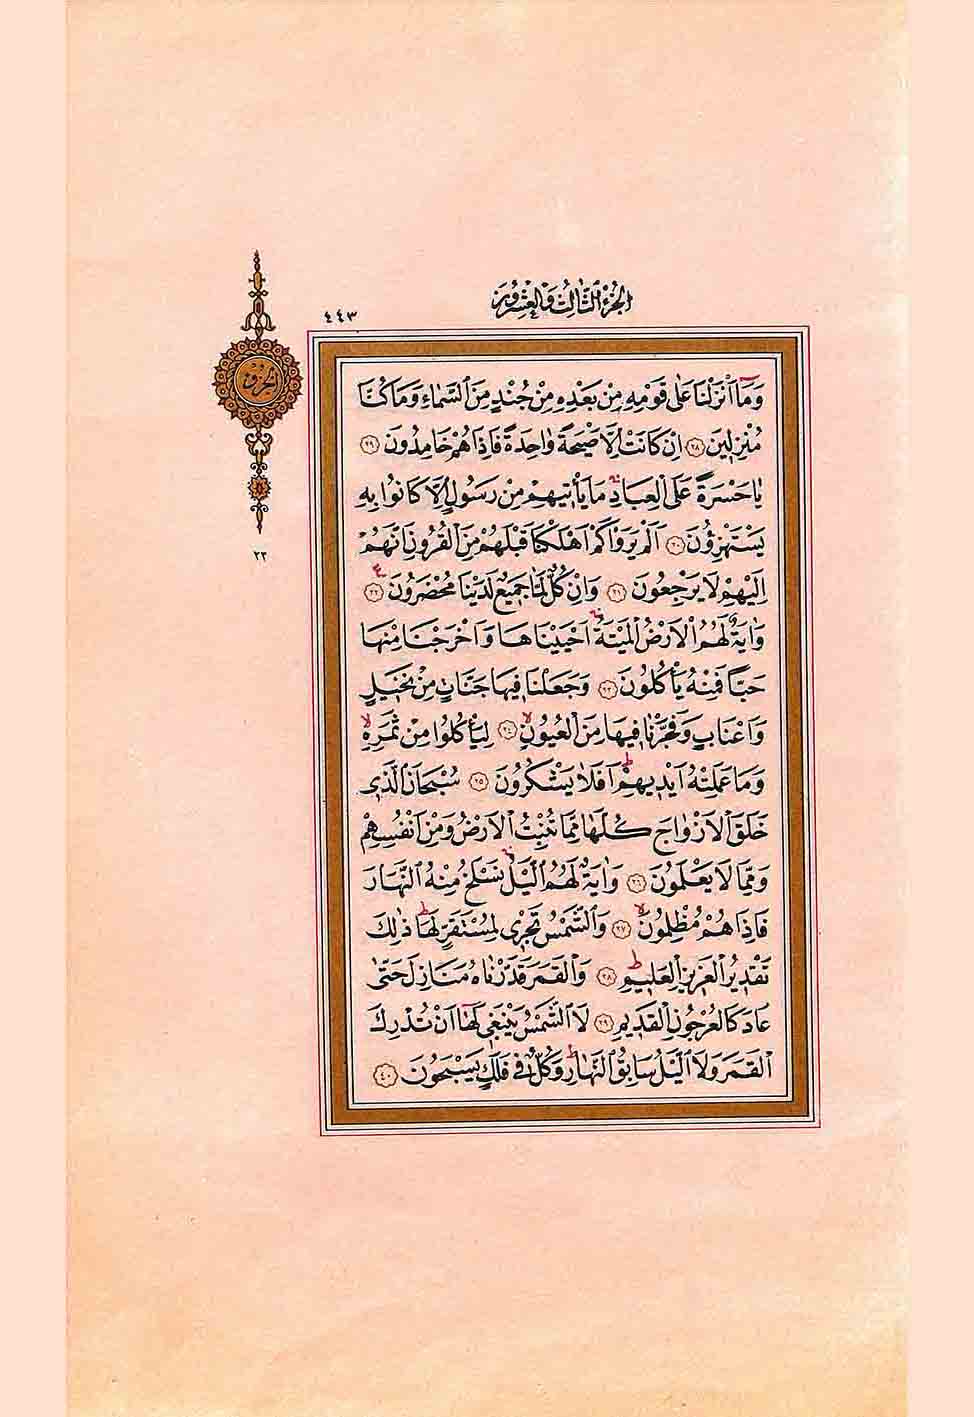 الجزء الثالث والعشرون
٤٤٣
وَمَٓا اَنْزَلْنَا عَلٰى قَوْمِهٖ مِنْ بَعْدِهٖ مِنْ جُنْدٍ مِنَ السَّمَٓاءِ وَمَا كُنَّا
مُنْزِلٖينَ ﴿٢٨﴾ اِنْ كَانَتْ اِلَّا صَيْحَةً وَاحِدَةً فَاِذَا هُمْ خَامِدُونَ ﴿٢٩﴾
يَا حَسْرَةً عَلَى الْعِبَادِۚ مَا يَأْتٖيهِمْ مِنْ رَسُولٍ اِلَّا كَانُوا بِهٖ
يَسْتَهْزِؤُنَ ﴿٣٠﴾ اَلَمْ يَرَوْا كَمْ اَهْلَكْنَا قَبْلَهُمْ مِنَ الْقُرُونِ اَنَّهُمْ
اِلَيْهِمْ لَا يَرْجِعُونَ ﴿٣١﴾ وَاِنْ كُلٌّ لَمَّا جَمٖيعٌ لَدَيْنَا مُحْضَرُونَ ﴿٣٢﴾ ع
وَاٰيَةٌ لَهُمُ الْاَرْضُ الْمَيْتَةُۚ اَحْيَيْنَاهَا وَاَخْرَجْنَا مِنْهَا
حَبًّا فَمِنْهُ يَأْكُلُونَ ﴿٣٣﴾ وَجَعَلْنَا فٖيهَا جَنَّاتٍ مِنْ نَخٖيلٍ
وَاَعْنَابٍ وَفَجَّرْنَا فٖيهَا مِنَ الْعُيُونِۙ ﴿٣٤﴾ لِيَأْكُلُوا مِنْ ثَمَرِهٖۙ
وَمَا عَمِلَتْهُ اَيْدٖيهِمْۜ اَفَلَا يَشْكُرُونَ ﴿٣٥﴾ سُبْحَانَ الَّذٖى
خَلَقَ الْاَزْوَاجَ كُلَّهَا مِمَّا تُنْبِتُ الْاَرْضُ وَمِنْ اَنْفُسِهِمْ
وَمِمَّا لَا يَعْلَمُونَ ﴿٣٦﴾ وَاٰيَةٌ لَهُمُ الَّيْلُۚ نَسْلَخُ مِنْهُ النَّهَارَ
فَاِذَا هُمْ مُظْلِمُونَۙ ﴿٣٧﴾ وَالشَّمْسُ تَجْرٖى لِمُسْتَقَرٍّ لَهَاۜ ذٰلِكَ
تَقْدٖيرُ الْعَزٖيزِ الْعَلٖيمِۜ ﴿٣٨﴾ وَالْقَمَرَ قَدَّرْنَاهُ مَنَازِلَ حَتّٰى
عَادَ كَالْعُرْجُونِ الْقَدٖيمِ ﴿٣٩﴾ لَا الشَّمْسُ يَنْبَغٖى لَهَٓا اَنْ تُدْرِكَ
الْقَمَرَ وَلَا الَّيْلُ سَابِقُ النَّهَارِۜ وَكُلٌّ فٖى فَلَكٍ يَسْبَحُونَ ﴿٤٠﴾
الحزب
٢٣